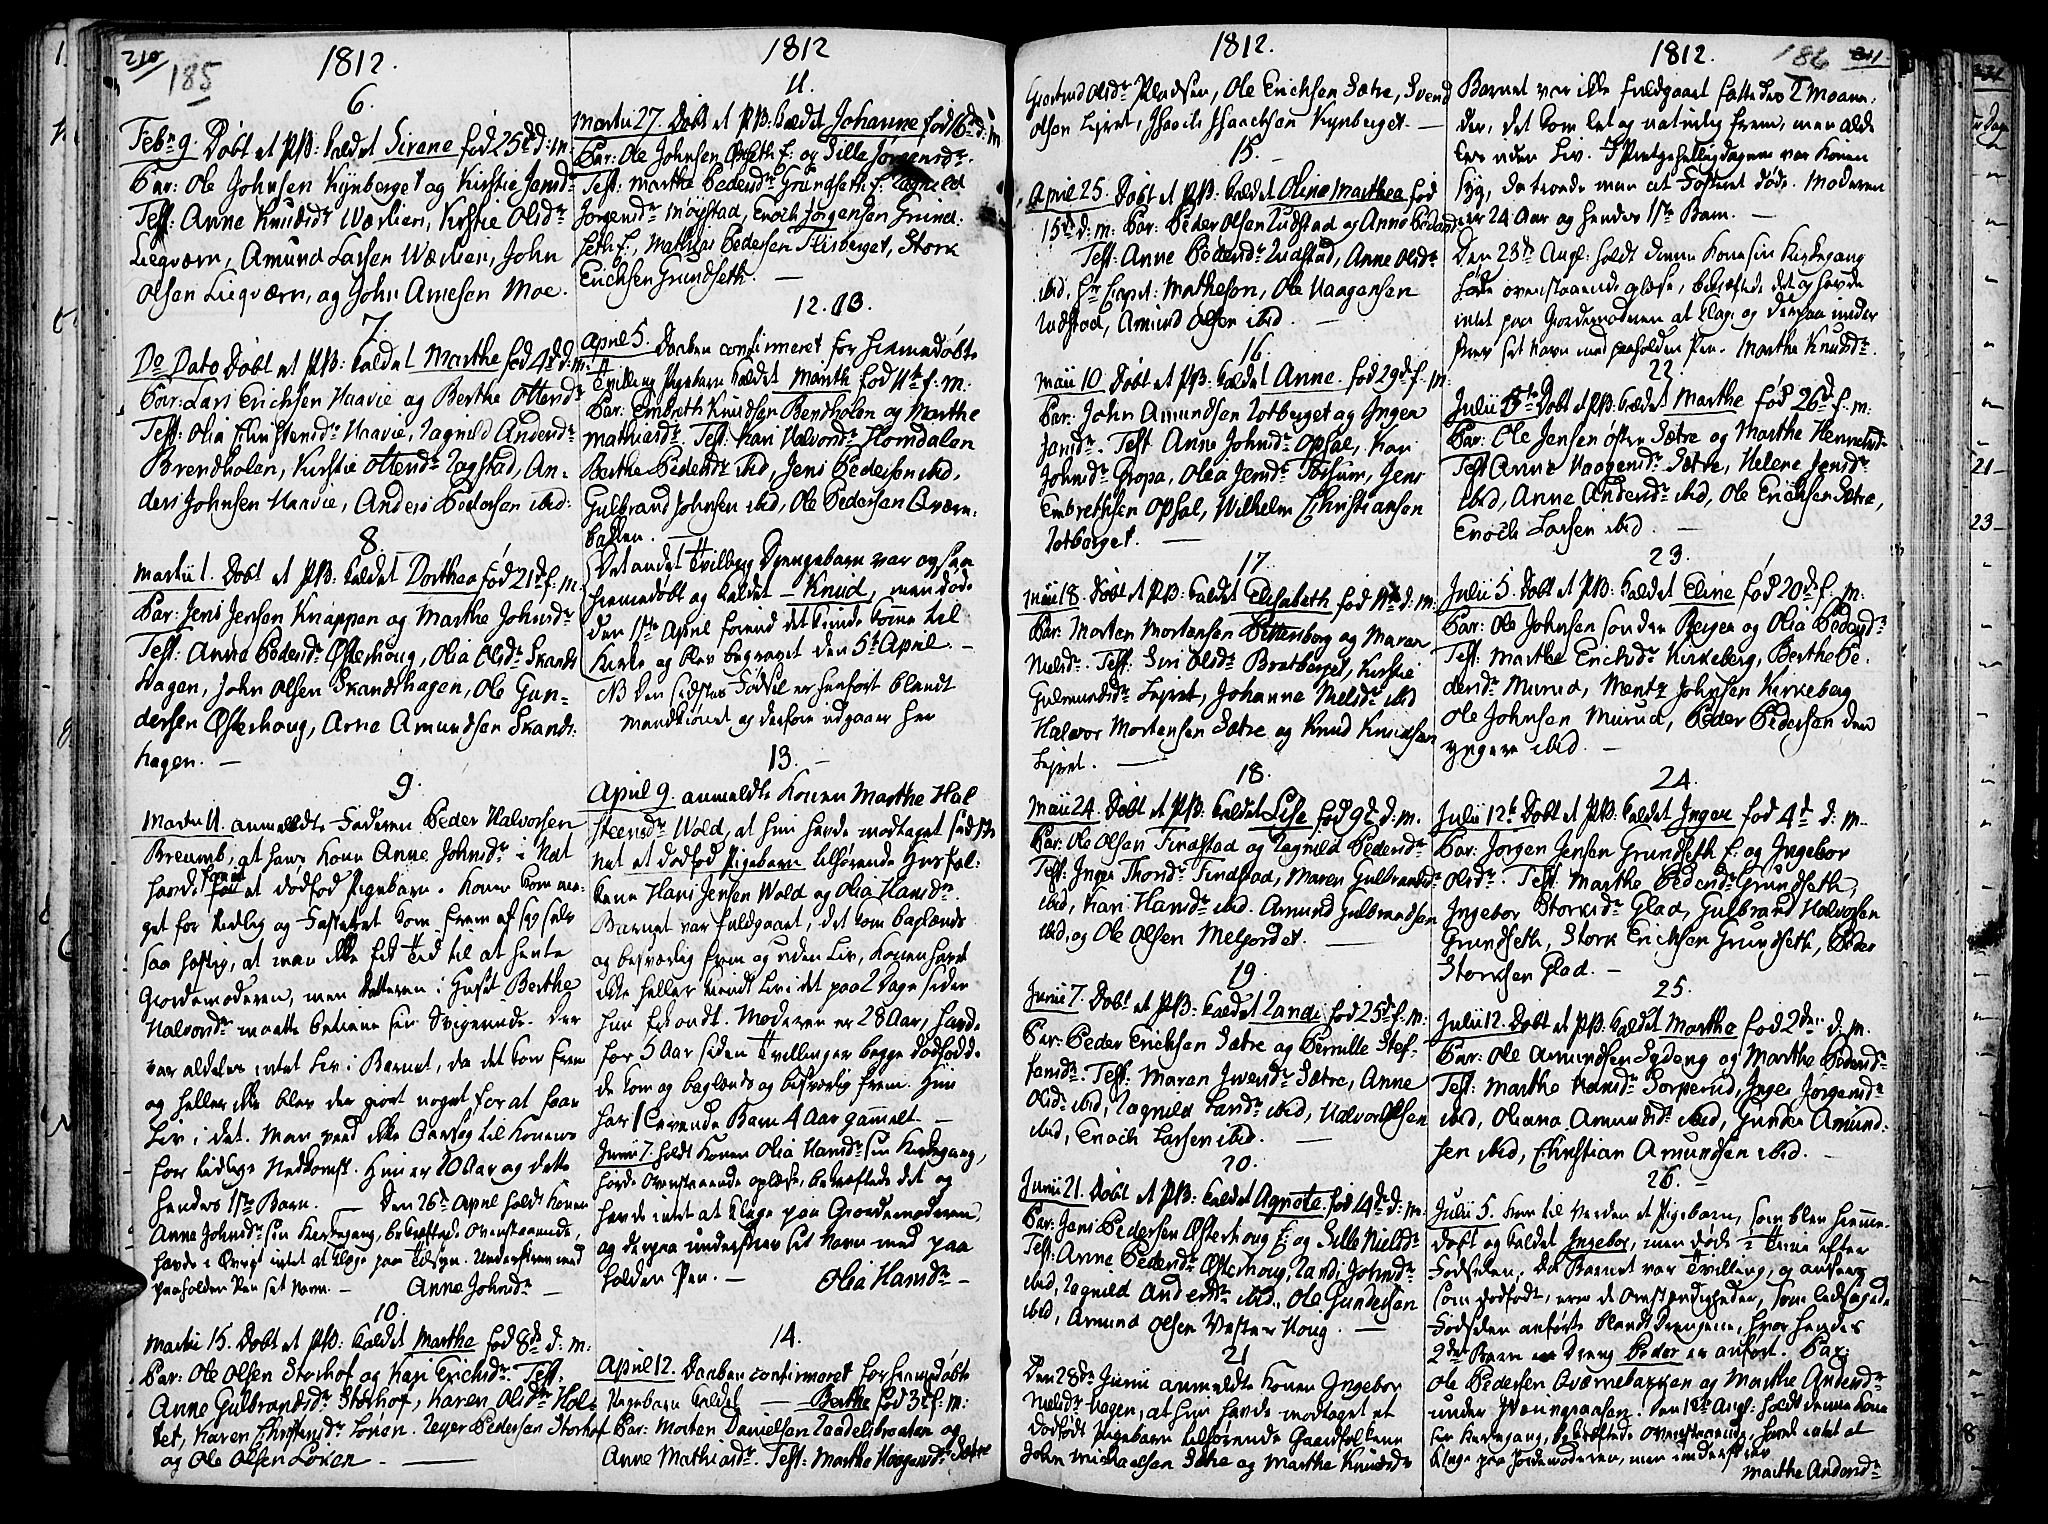 210
185
1812.
6.
Febr 9. Døbt et PB: kaldet Sirene fød 25de d: m:
Par: Ole Johnsen Kynberget og Kirstie Jensdr
Test: Anne Knudsdr Wærlien, Kirstie Olsdr
Liegværn, Amund Larsen Wærlien, John
Olsen Liegværn, og John Arnesen Moe.
7.
Do Dato Døbt et PB: kaldet Marthe fød 4de d: m:
Par: Lars Erichsen Haavie og Berthe Ottersdr
Test: Olia Christensdr Haavie, Ragnild Andersdr
Brendholen, Kirstie Ottersdr Ragstad, An-
ders Johnsen Haavie, Anders Pedersen ibid:
8.
Martii 1. Døbt et PB: kaldet Dorthea fød 21de f. m.
Par: Jens Jensen Knappen og Marthe Johnsdr
Test: Anne Pedersdr Østerhoug, Olia Olsdr Skands
hagen, John Olsen Skandshagen, Ole Gun-
dersen Østerhoug, Arne Amundsen Skands-
hagen. —
9.
Martii 11. anmeldte Faderen Peder Halvorsen
Breumb, at hans Kone Anne Johnsdr i Nat
havde født et dødfød Pigebarn. Konen kom me-
get for tidlig og Fosteret kom frem af sig selv
saa hastig, at man ikke fik Tid til at hente
Giordemoderen, men Datteren i Huset Berthe
Halvorsdr maatte betiene sin Svigerinde. Der
var aldeles intet Liv i Barnet, da det kom frem
og heller ikke blev der giort noget for at faae
Liv i det. Man veed ikke Aarsag til Konens
for tidlige Nedkomst. Hun er 20 Aar og dette
hendes 1ste Barn. — Den 26de April holdt Konen
Anne Johnsdr sin Kirkegang, bekræftede Ovenstaaende,
havde i Øvrigt intet at klage paa Tilsyn. Underskrev med
paaholden Pen set Navn. — Anne Johnsdr —
10.
Martii 15. Døbt et PB: kaldet Marthe fød 8de d: m:
Par: Ole Olsen Storhof og Kari Erichsdr. Test:
Anne Gulbrandsdr Storhof, Karen Olsdr Hol-
tet, Karen Christensdr Løken. Peder Pedersen Storhof
og Ole Olsen Løken —
1812
11.
Martii 27. Døbt et PB: kaldet Johanne fød 16de d: m
Par: Ole Johnsen Øvseth f: og Sille Jørgensdr.
Test: Marthe Pedersdr Grundseth f. Ragnild
Jørgensdr Møystad, Enoch Jørgensen Grind-
seth f., Mathias Pedersen Flisberget, Stork
Erichsen Grundseth. —
12. 13.
April 5. Daaben confirmeret for hiemedøbte
Tvilling Pigebarn kaldet Marth fød 11te f. m.
Par: Embreth Knudsen Brendholen og Marthe
Mathiesdr. Test: Kari Halvorsdr Homdalen
Berthe Pedersdr ibid, Jens Pedersen ibid,
Gulbrand Johnsen ibid, Ole Pedersen Qværn-
bakken. —
Det andet Tvilling Drengebarn var ogsaa
hiemedøbt og kaldet — Knud, men døde
den 1ste April forend det kunde komme til
Kirke og blev begravet den 5te April. —
NB Den sidstes Fødsel er henført blandt
Mandkiønet og derfore udgaaer her
13. —
April 9. anmeldte Konen Marthe Hal
steensdr Wold, at hun havde modtaget sidste
Nat et dødfød Pigebarn tilhørende Husfol-
kene Hans Jensen Wold og Olia Hansdr.
Barnet var fuldgaaet, det kom baglænds
og besværlig frem og uden Liv, Konen havde
ikke heller kiendt Liv i det paa 2 Dage siden
hun fik ondt. Moderen er 28 Aar, havde
for 5 Aar siden Tvillinger begge dødfødde
de kom og baglænds og besværlig frem. Hun
har 1 levende Barn 4 Aar gammelt. —
Junii 7. holdt Konen Olia Hansdr sin Kirkegang,
hørde Ovenstaaende oplæse, bekræftede det og
havde intet at klage paa Giordemoderen,
og derpaa underskrev sit Navn med paa
holden Pen. — Olia Hansdr —
14.
April 12. Daaben confirmeret for hiemedøbte
Pigebarn kaldet — Berthe fød 3de f. m:
Par: Morten Danielsen Raadelsbraaten og
Anne Mathiasdr. Test: Marthe Haagensdr Sætre
1812.
Giertrud Olsdr Pladsen, Ole Erichsen Sætre, Svend
Olsen Lyret, Isach Isachsen Kynberget. —
15.
April 25. Døbt et PB: kaldet Oline Marthea fød
15de d: m: Par: Peder Olsen Rudstad og Anne Pedersdr
Test: Anne Pedersdr Rudstad, Anne Olsdr
ibid. Hr Matheson, Ole Haagensen
Rudstad, Amund Olsen ibid. —
16.
Maii 10 Døbt et PB: kaldet Anne. fød 29de f. m:
Par: John Amundsen Rotberget og Inger
Jonsdr. Test. Anne Johnsdr Opsal, Kari
Johnsdr Gropa, Olea Jensdr Torsum, Jens
Embrethsen Opsal, Wilhelm Christiansen
Rotberget. —
17.
Maii 18. Døbt et PB: kaldet Elisabeth fød 11te d: m:
Par: Morten Mortensen Pettersborg og Maren
Nielsdr. Test: Siri Olsdr Bratberget, Kirstie
Gulmundsdr Lyret, Johanne Nielsdr ibid
Halvor Mortensen Sætre og Knud Knudsen
Lyret. —
18.
Maii 24. Døbt et PB: kaldet Lise fød 9de d: m.
Par: Ole Olsen Findstad og Ragnild Pedersdr
Test: Inger Thorsdr Findstad, Maren Gulbrandsdr
ibid, Kari Hansdr ibid. Amund Gulbrandsen
ibid, og Ole Olsen Melgordet. —
19.
Junii 7. Døbt et PB: kaldet Randi fød 25de f. m:
Par: Peder Erichsen Sætre og Pernille Stef-
fansdr. Test: Maren Iversdr Sætre, Anne
Olsdr ibid, Ragnild Larsdr ibid, Halvor Olsen
ibid, Enoch Larsen ibid. —
20.
Junii 21. Døbt et PB: kaldet Agnete. fød 14de d: m:
Par: Jens Pedersen Østerhoug f: og Sille Nielsdr
Test: Anne Pedersdr Østerhoug, Randi Johnsdr
ibid, Ragnild Andersdr ibid, Ole Gundersen
ibid, Amund Olsen Vester Houg. —
21
Den 28de Junii anmeldte Konen Ingebor
Nielsdr Hagen, at hun havde modtaget et
dødfødt Pigebarn tilhørende Gaardfolkene
John Michaelsen Sætre og Marthe Knudsdr
1812.
186
211.
Barnet var ikke fuldgaaet fattedes 2 Maane-
der, det kom let og naturlig frem, men alde
les uden Liv. I Pintsehelligdagene var Konen
syg, da troede man at Fosteret døde. Moderen
er 24 Aar og hendes 1ste Barn. —
Den 23de Aug: holdt denne Kone sin Kirkegang
hørte ovenstaaende oplæse, bekræftede det og havde
intet paa Giordemoderen at klage og derpaa under
skrev set Navn med paaholden Pen. Marthe Knudsdr.
22
Julii 5te Døbt et PB: kaldet Marthe fød 26de f. m:
Par: Ole Jensen Øster Sætre og Marthe Henrichsdr
Test Anne Haagensdr Sætre, Helene Jensdr
ibid, Anne Andersdr ibid, Ole Erichsen Sætre,
Enoch Larsen ibid. —
23.
Julii 5. Døbt et PB: kaldet Eline fød 20de f. m.
Par: Ole Johnsen søndre Bergen og Olia Pedersdr
Test: Marthe Erichsdr Kirkeberg, Berthe Pe-
dersdr Murud, Mentz Johnsen Kirkeberg
Ole Johnsen Murud, Peder Pedersen den
yngere ibid. —
24.
Julii 12te Døbt et PB: kaldet Inger fød 4de d: m.
Par: Jørgen Jensen Grundseth f: og Ingebor
Olsdr. Test: Marthe Pedersdr Grundseth,
Ingebor Storksdr Glad, Gulbrand Halvorsen
Grundseth, Stork Erichsen Grundseth, Peder
Storksen Glad. —
25.
Julii 12. Døbt et PB: kaldet Marthe fød 2den d: m.
Par: Ole Amundsen Sydeng og Marthe Pedersdr
Test: Marthe Hansdr Sorperud, Inger Jørgensdr
ibid, Oleana Amundsdr ibid, Gunder Amund-
sen ibid, Christian Amundsen ibid. —
26.
Julii 5. kom til Verden et Pigebarn, som blev hieme-
døbt og kaldet Ingebor, men døde 2 Timer efter
Fødselen. Da Barnet var Tvilling, og ansees
som dødfødt, ere de Omstændigheder, som ledsagede
Fødselen anførte blandt Drengene, hvor hendes
2det Barn en Dreng Peder er anført. Par:
Ole Pedersen Qværnebakken og Marthe Andersdr
under Den 18de Aug: holdt denne Kone
sin Kirkegang, bekræftede Ovenstaaende, havde intet at
klage paa Jordemoderen, men underskrev
Marthe Andersdr
21 —
23 —